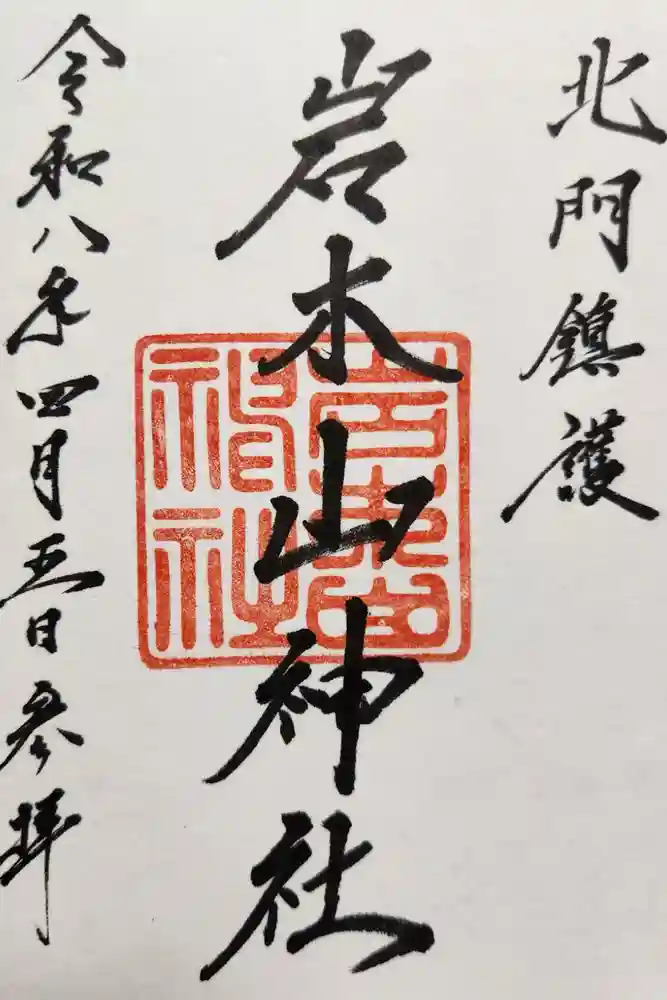 北門鎮護
岩木山神社
令和八年四月五日参拝
岩木山神社